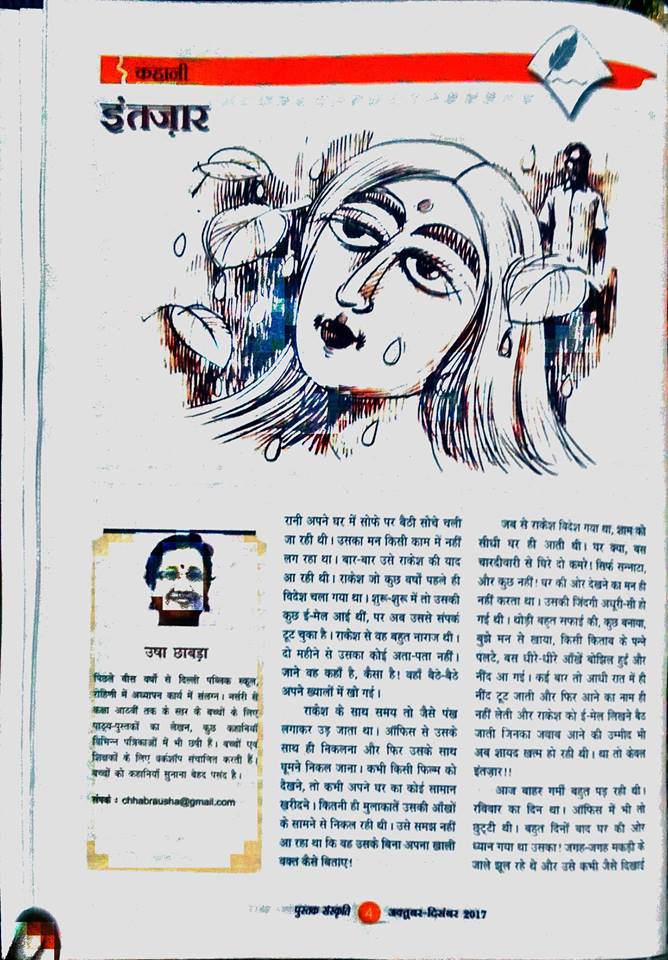 कहानी
इंतज़ार
उषा छाबड़ा
पिछले बीस वर्षों से दिल्ली पब्लिक स्कूल,
रोहिणी में अध्यापन कार्य में संलग्न। नर्सरी से
कक्षा आठवीं तक के स्तर के बच्चों के लिए
पाठ्य-पुस्तकों का लेखन, कुछ कहानियाँ
विभिन्न पत्रिकाओं में भी छपी हैं। बच्चों एवं
शिक्षकों के लिए वर्कशॉप संचालित करती हैं।
बच्चों को कहानियाँ सुनाना बेहद पसंद है।
संपर्क : chhabrausha@gmail.com
रानी अपने घर में सोफे पर बैठी सोचे चली
जा रही थी। उसका मन किसी काम में नहीं
लग रहा था। बार-बार उसे राकेश की याद
आ रही थी। राकेश जो कुछ वर्षों पहले ही
विदेश चला गया था। शुरू-शुरू में तो उसकी
कुछ ई-मेल आई थीं, पर अब उससे संपर्क
टूट चुका है। राकेश से वह बहुत नाराज थी।
दो महीने से उसका कोई अता-पता नहीं।
जाने वह कहाँ है, कैसा है! वहाँ बैठे-बैठे
अपने ख्यालों में खो गई।
राकेश के साथ समय तो जैसे पंख
लगाकर उड़ जाता था। ऑफिस से उसके
साथ ही निकलना और फिर उसके साथ
घूमने निकल जाना। कभी किसी फिल्म को
देखने, तो कभी अपने घर का कोई सामान
खरीदने। कितनी ही मुलाकातें उसकी आँखों
के सामने से निकल रही थी। उसे समझ नहीं
आ रहा था कि वह उसके बिना अपना खाली
वक्त कैसे बिताए!
जब से राकेश विदेश गया था, शाम को
सीधी घर ही आती थी। पर क्या, बस
चारदीवारी से घिरे दो कमरे! सिर्फ सन्नाटा,
और कुछ नहीं! घर की ओर देखने का मन ही
नहीं करता था। उसकी जिंदगी अधूरी-सी हो
गई थी। थोड़ी बहुत सफाई की, कुछ बनाया,
बुझे मन से खाया, किसी किताब के पन्ने
पलटे, बस धीरे-धीरे आँखें बोझिल हुईं और
नींद आ गई। कई बार तो आधी रात में ही
नींद टूट जाती और फिर आने का नाम ही
नहीं लेती और राकेश को ई-मेल लिखने बैठ
जाती जिनका जवाब आने की उम्मीद भी
अब शायद खत्म हो रही थी। था तो केवल
इंतज़ार!!
आज बाहर गर्मी बहुत पड़ रही थी।
रविवार का दिन था। ऑफिस में भी तो
छुट्टी थी। बहुत दिनों बाद घर की ओर
ध्यान गया था उसका! जगह-जगह मकड़ी के
जाले झूल रहे थे और उसे कभी जैसे दिखाई
पुस्तक संस्कृति 4 अक्तूबर-दिसंबर 2017